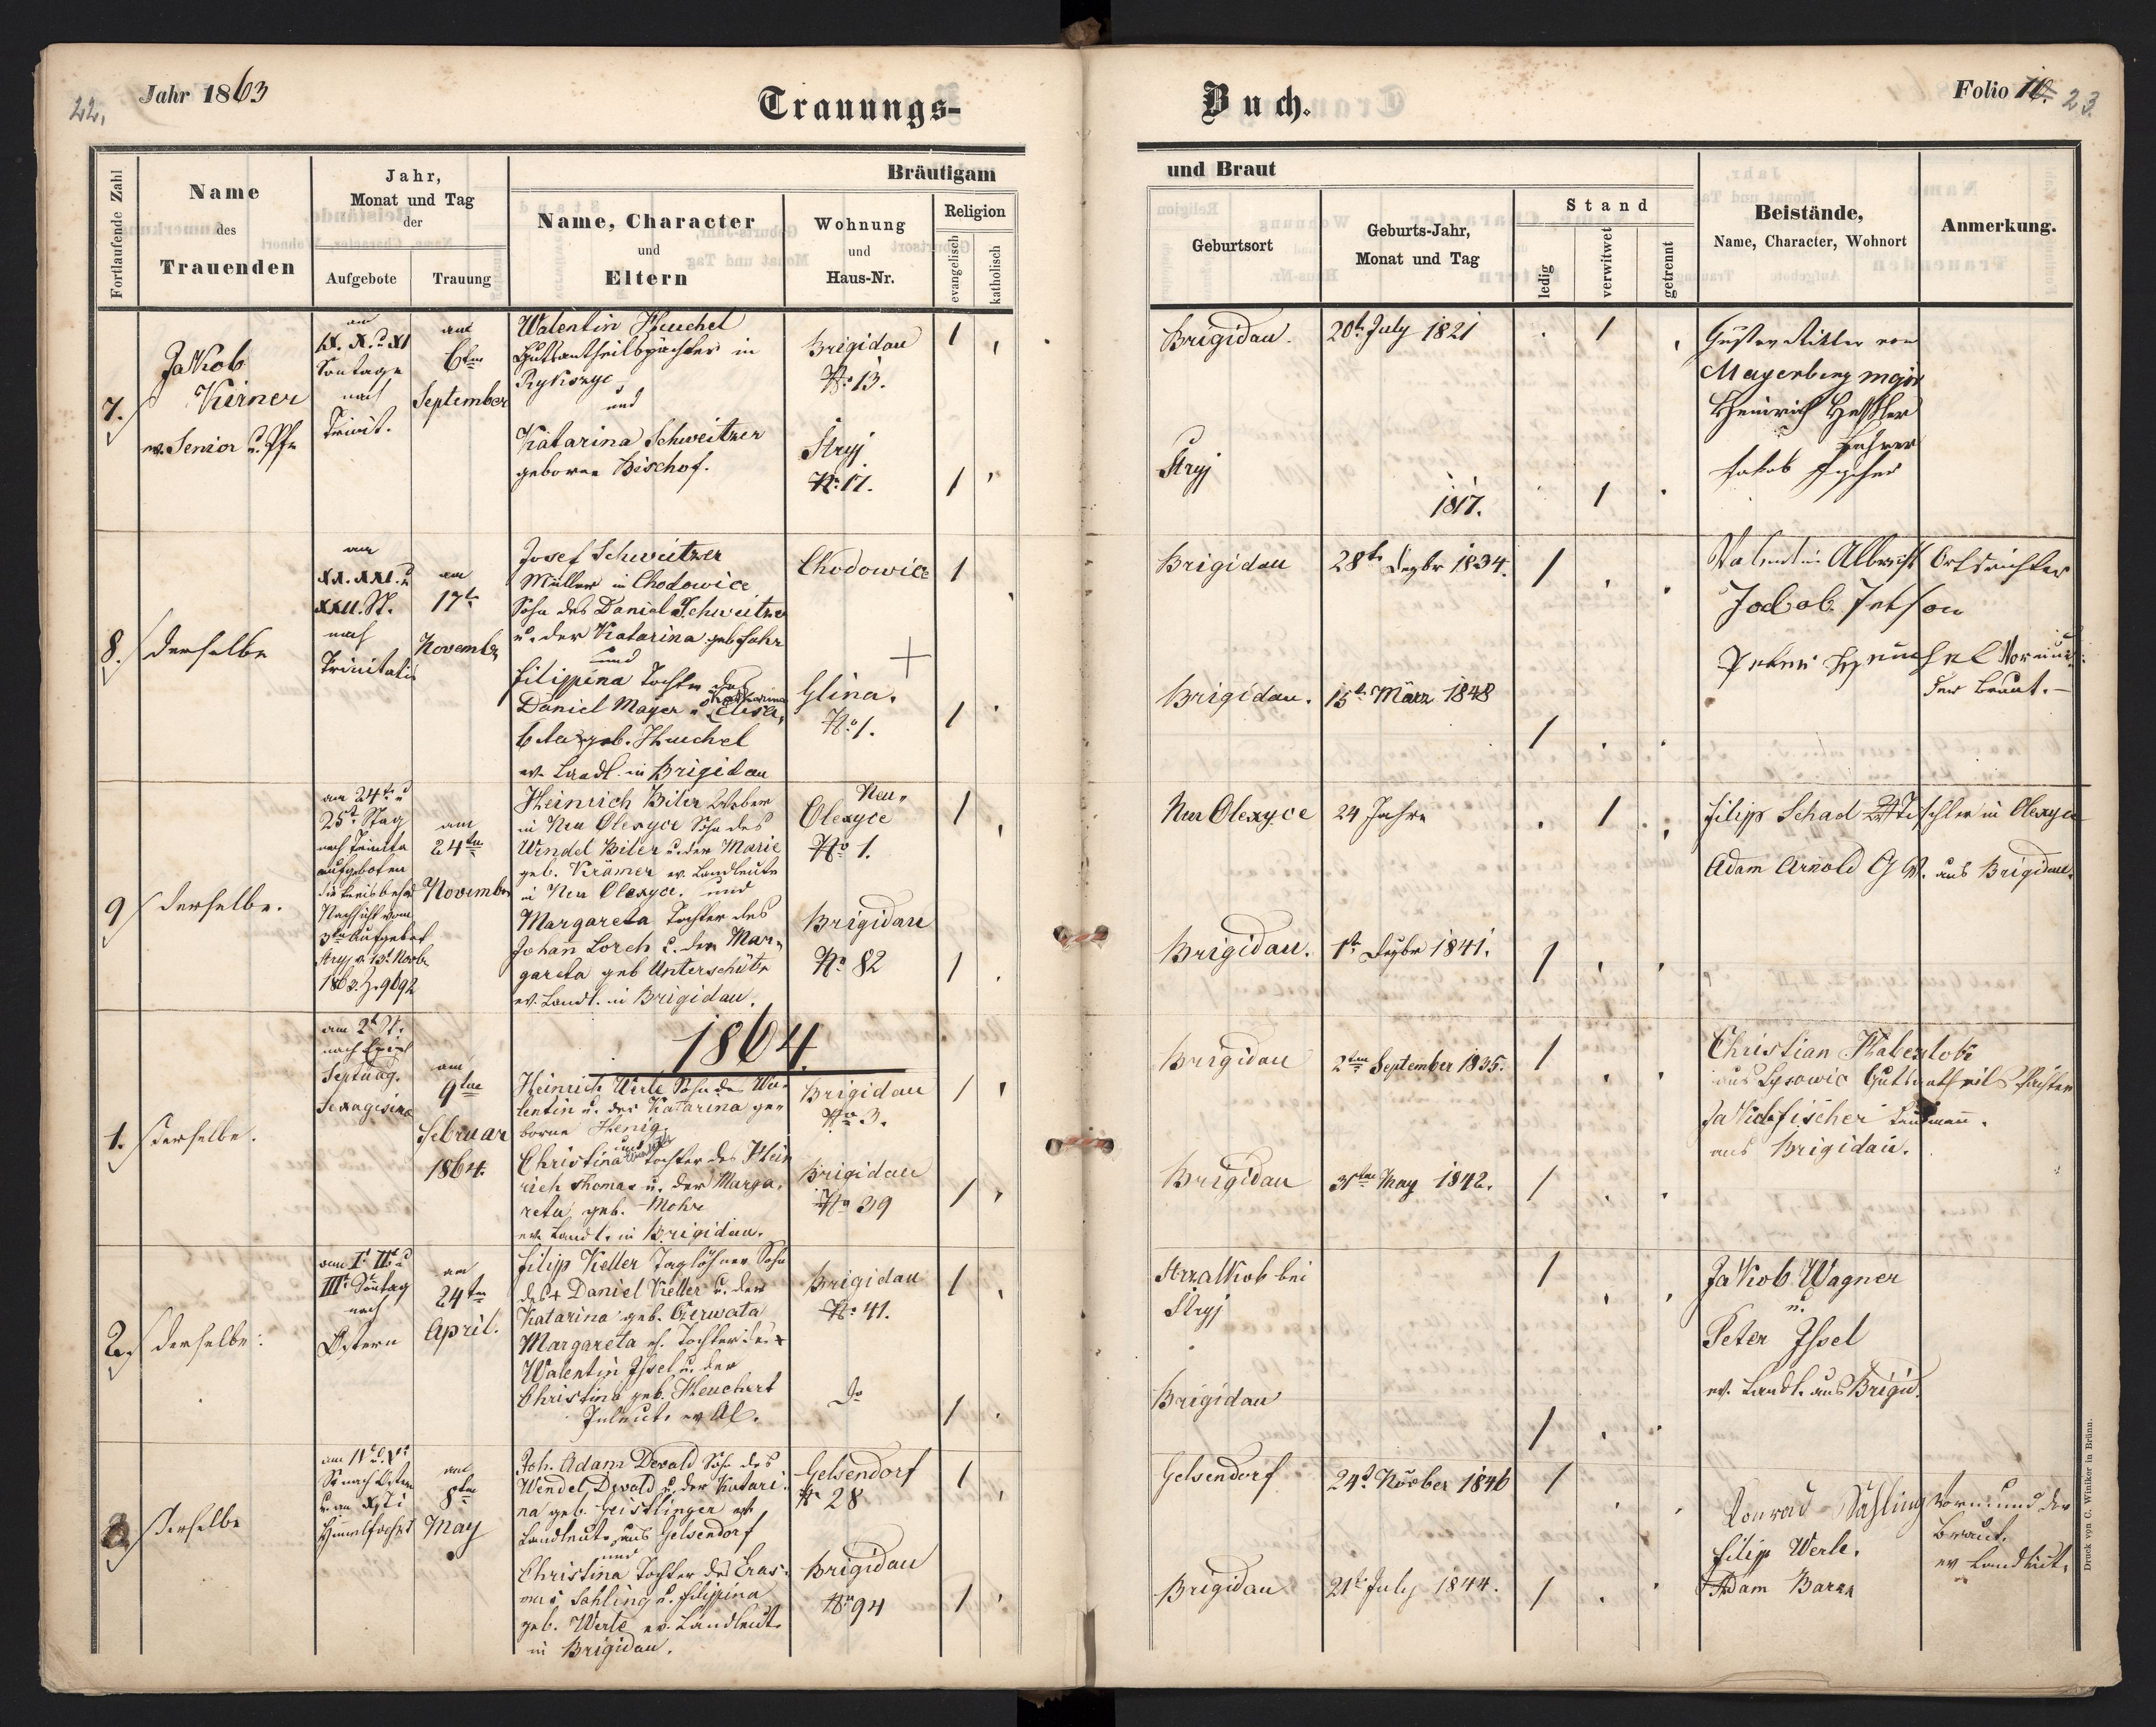 22.
Jahr 1863
Trauungs-
Buch.
Folio 23.
Fortlaufende Zahl
Name
des
Trauenden
Jahr,
Monat und Tag
der
Aufgebote
Trauung
Bräutigam
Name, Character
und
Eltern
Wohnung
und
Haus-Nr.
Religion
evangelisch
katholisch
und Braut
Geburtsort
Geburts-Jahr,
Monat und Tag
Stand
ledig
verwitwet
getrennt
Beistände,
Name, Character, Wohnort
Anmerkung.
7.
Jakob
Kirner
ev. Senior u. Pfr
am
IX. X. u XI
Sontage
nach
Trinit.
am
6ten
September
Walentin Heuchel
Gutsantheilspächter in
und
Katarina Schweitzer
geborne Bischof.
Brigidau
No 13.
Stryj
No 17.
Brigidau.
20t July 1821
Stryj
1817.
Gustav Ritter von
Mayerberg
Heinrich
Lehrer
Jakob
8.
derselbe
am
XX. XXI. u
XXII. St.
nach
Trinitatis
am
17t
Novemb
Josef Schweitzer
Müller in Chodowice
Sohn des Daniel Schweitzer
u. der Katarina geb
und
Filippina Tochter des
Daniel Mayer u Katharina Elisa
beta geb. Heuchel
ev. Landl. in Brigidau
Chodowice
Glina.
No 1.
Brigidau
28t Dezbr 1834.
Brigidau.
15t März 1848
Valentin Albrecht Ortsrichter
Jakob
Peter Heuchel Vormund
der Braut.
9
derselbe.
am 24t u
25t Stag
nach Trinita
aufgeboten
Nachsicht vom
3ten Aufgebot
Stryj
am
24ten
November
Heinrich Biler Weber
in Neu Olexyce Sohn des
Wendel Biler u. der Marie
geb. Krämer ev. Landleute
in Neu Olexyce. und
Margareta Tochter des
Johan Lorch u. der Mar-
gareta geb Unterschütz
ev. Landl. in Brigidau.
Neu-
Olexyce
No 1.
Brigidau
No 82
Neu Olexyce
24 Jahre
Brigidau.
1t Dezbr 1841.
Filipp Schad Tischler in Olexyce
Adam Arnold G aus Brigidau.
1864.
1.
derselbe.
am 2t St.
nach Epiph
Septuag.
Sexagesima
am
9ten
Februar
1864.
Heinrich Werle Sohn de Wa-
lentin u. der Katarina ge-
borne Henig.
und
Christina Tochter des Hein
rich Thomas u. der Marga-
reta geb. Mohr
ev. Landl. in Brigidau.
Brigidau
No 3.
Brigidau
No 39
Brigidau
2ten September 1835.
Brigidau
May 1842.
Christian Haberlok
aus Lysowic Gutsantheils Pächter
Jakob Fischer
aus Brigidau.
2.
derselbe:
am I. II u
III Sontag
nach
Ostern
am
24ten
April.
Filipp Keller Taglöhner Sohn
des + Daniel Keller u. der
Katarina geb. Czerwata
Margareta Tochter des +
Walentin Issel u. der
Christina geb. Heuchert
Brigidau
No 41.
do
Strzalkob bei
Stryj
Brigidau
Jakob Wagner
u.
Peter Issel
ev. Landl. aus Brigid.
3
derselbe
am IV u. V
St nach Ostern
u. am
Himmelfahrt
am
8ten
May
Joh. Adam Dewald Sohn des
Wendel Dewald u. der Katari-
na geb. Geistlinger
Landleute aus Gelsendorf
und
Christina Tochter des Eras-
mus Sahling u. Filippina
geb. Werle ev. Landleute
in Brigidau.
Gelsendorf
No 28
Brigidau
No 94
Gelsendorf
24t November 1846
Brigidau
21t July 1844.
Konrad Sahling Vormund der
Braut.
Filipp Werle.
ev Landleut.
Adam
Druck von C. Winiker in Brünn.